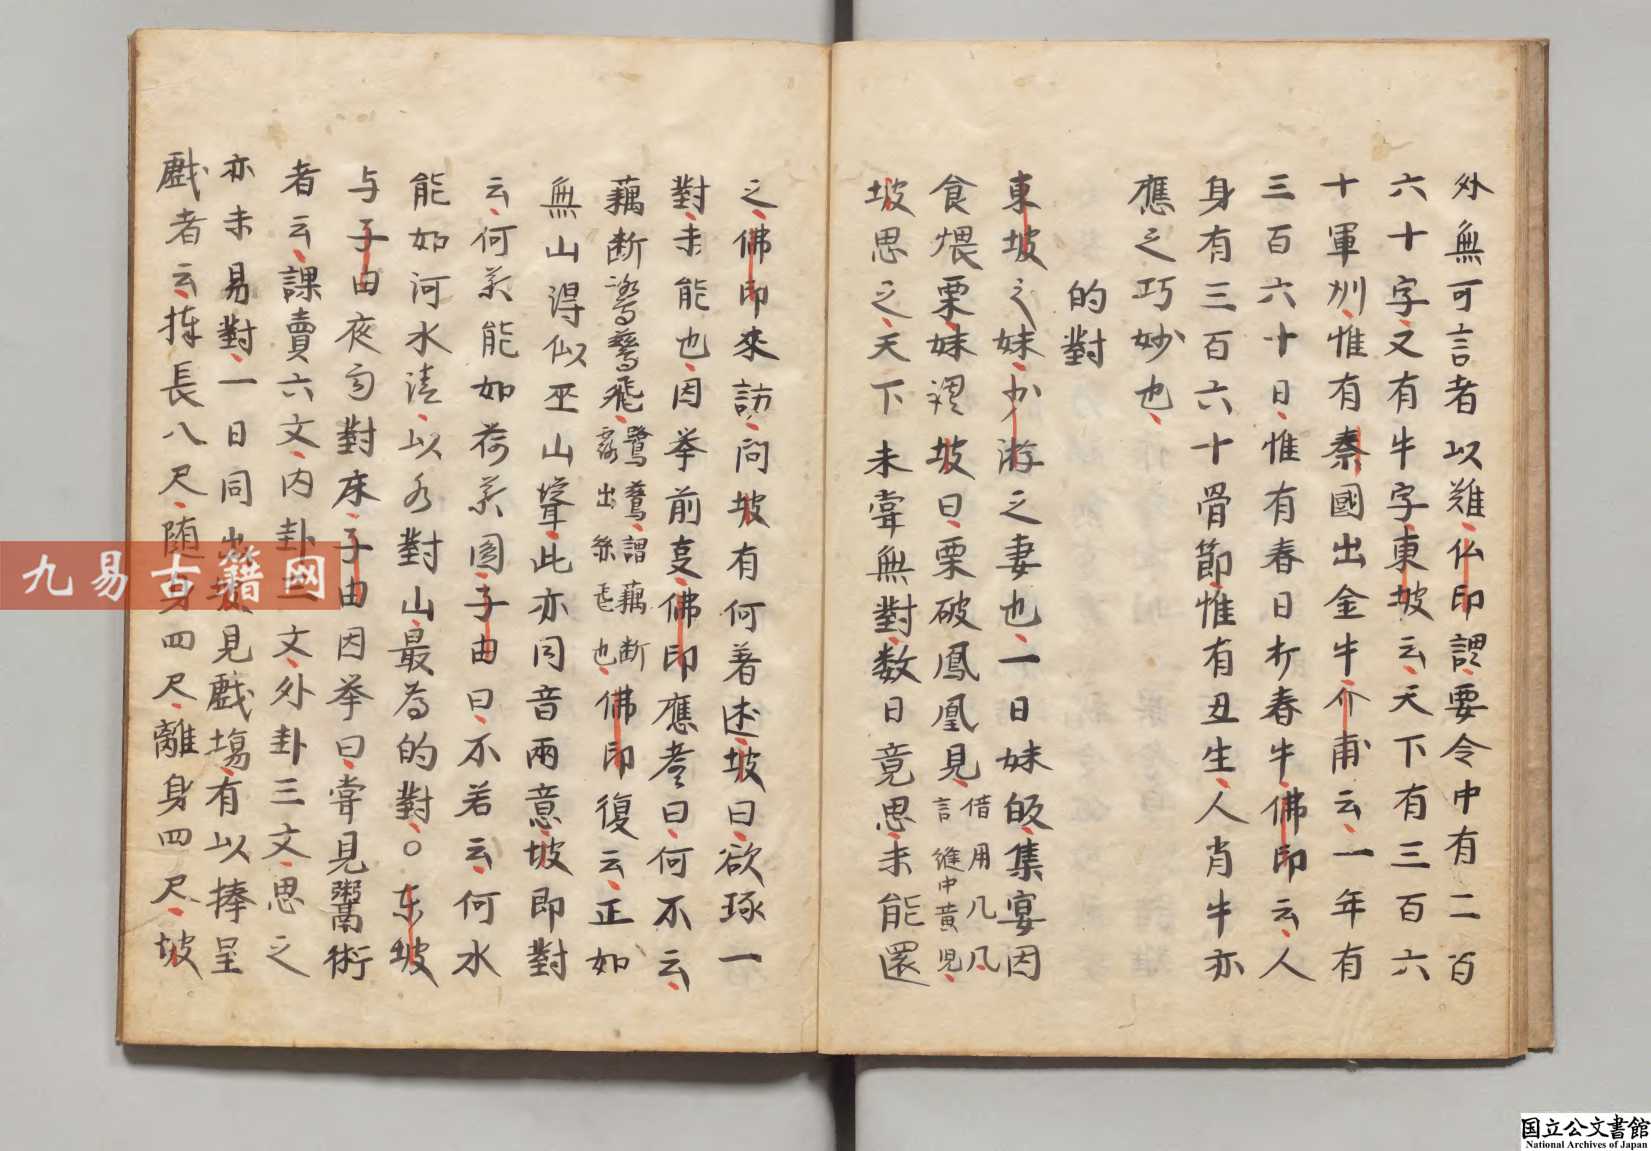 外無可言者以難仏印謂要令中有二百
六十字又有牛字東坡云天下有三百六
十軍州惟有秦國出金牛介甫云一年有
三百六十日惟有春日打春牛佛印云人
身有三百六十骨節惟有丑生人肖牛亦
應之巧妙也
的對
東坡之妹少游之妻也一日妹皈集宴因
食煨栗妹謂坡曰栗破鳳凰見借用几凡
言縫中黄児
坡思之天下未甞無對数日竟思未能還
之佛印來訪問坡有何著述坡曰欲琢一
對未能也因挙前㕝佛印應声曰何不云
藕断鷺鷥飛鷺鷥謂藕断
露出絲毛也佛印復云正如
無山得似巫山聳此亦同音兩意坡即對
云何葉能如荷葉圓子由曰不若云何水
能如河水清以水對山最為的對○东坡
与子由夜雨對床子由因挙曰甞見鬻術
者云課賣六文内卦三文外卦三文思之
亦未易對一日同出坡見戲場有以捧呈
戲者云捧長八尺随身四尺離身四尺坡
九易古籍网
国立公文書館
National Archives of Japan